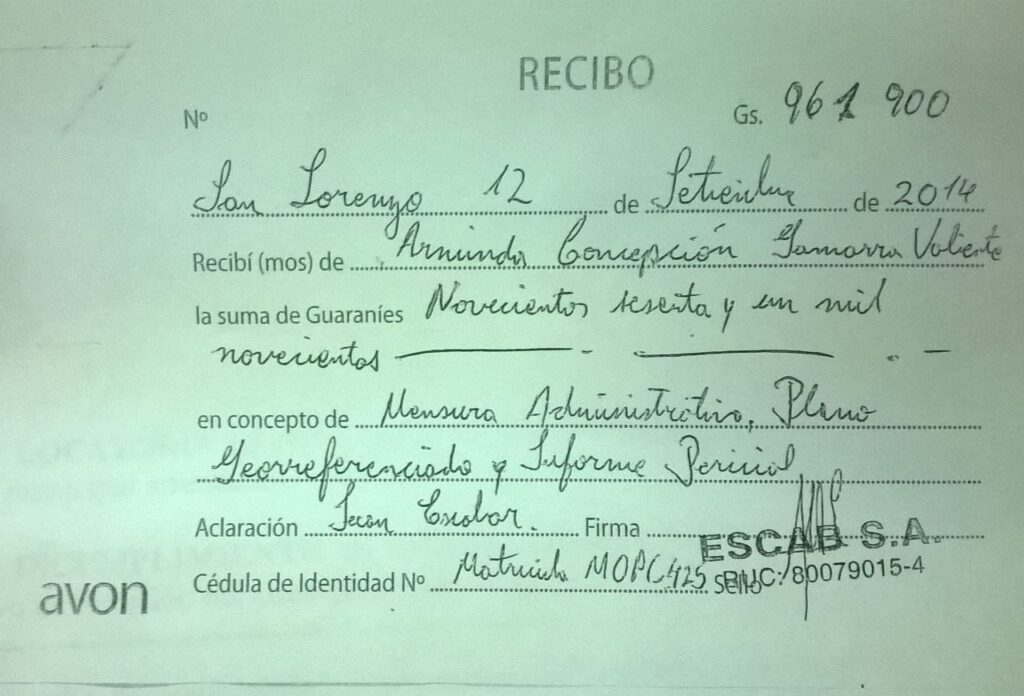 RECIBO
Nº Gs. 961 900
San Lorenzo 12 de Setiembre de 2014
Recibí (mos) de Arminda Concepción Gamarra Valiente
la suma de Guaraníes Novecientos sesenta y un mil
novecientos
en concepto de Mensura Administrativa, Plano
Georreferenciado y Informe Pericial
Aclaración Juan Escobar. Firma
ESCAB S.A.
Cédula de Identidad Nº Matricula MOPC 425 Sello RUC: 80079015-4
avon